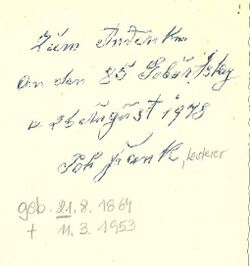 Zum Andenken
an den 85 Gebürtstag
25 August 1978
Joh Frank, Lederer
geb. 21.8.1864
† 11.3.1953